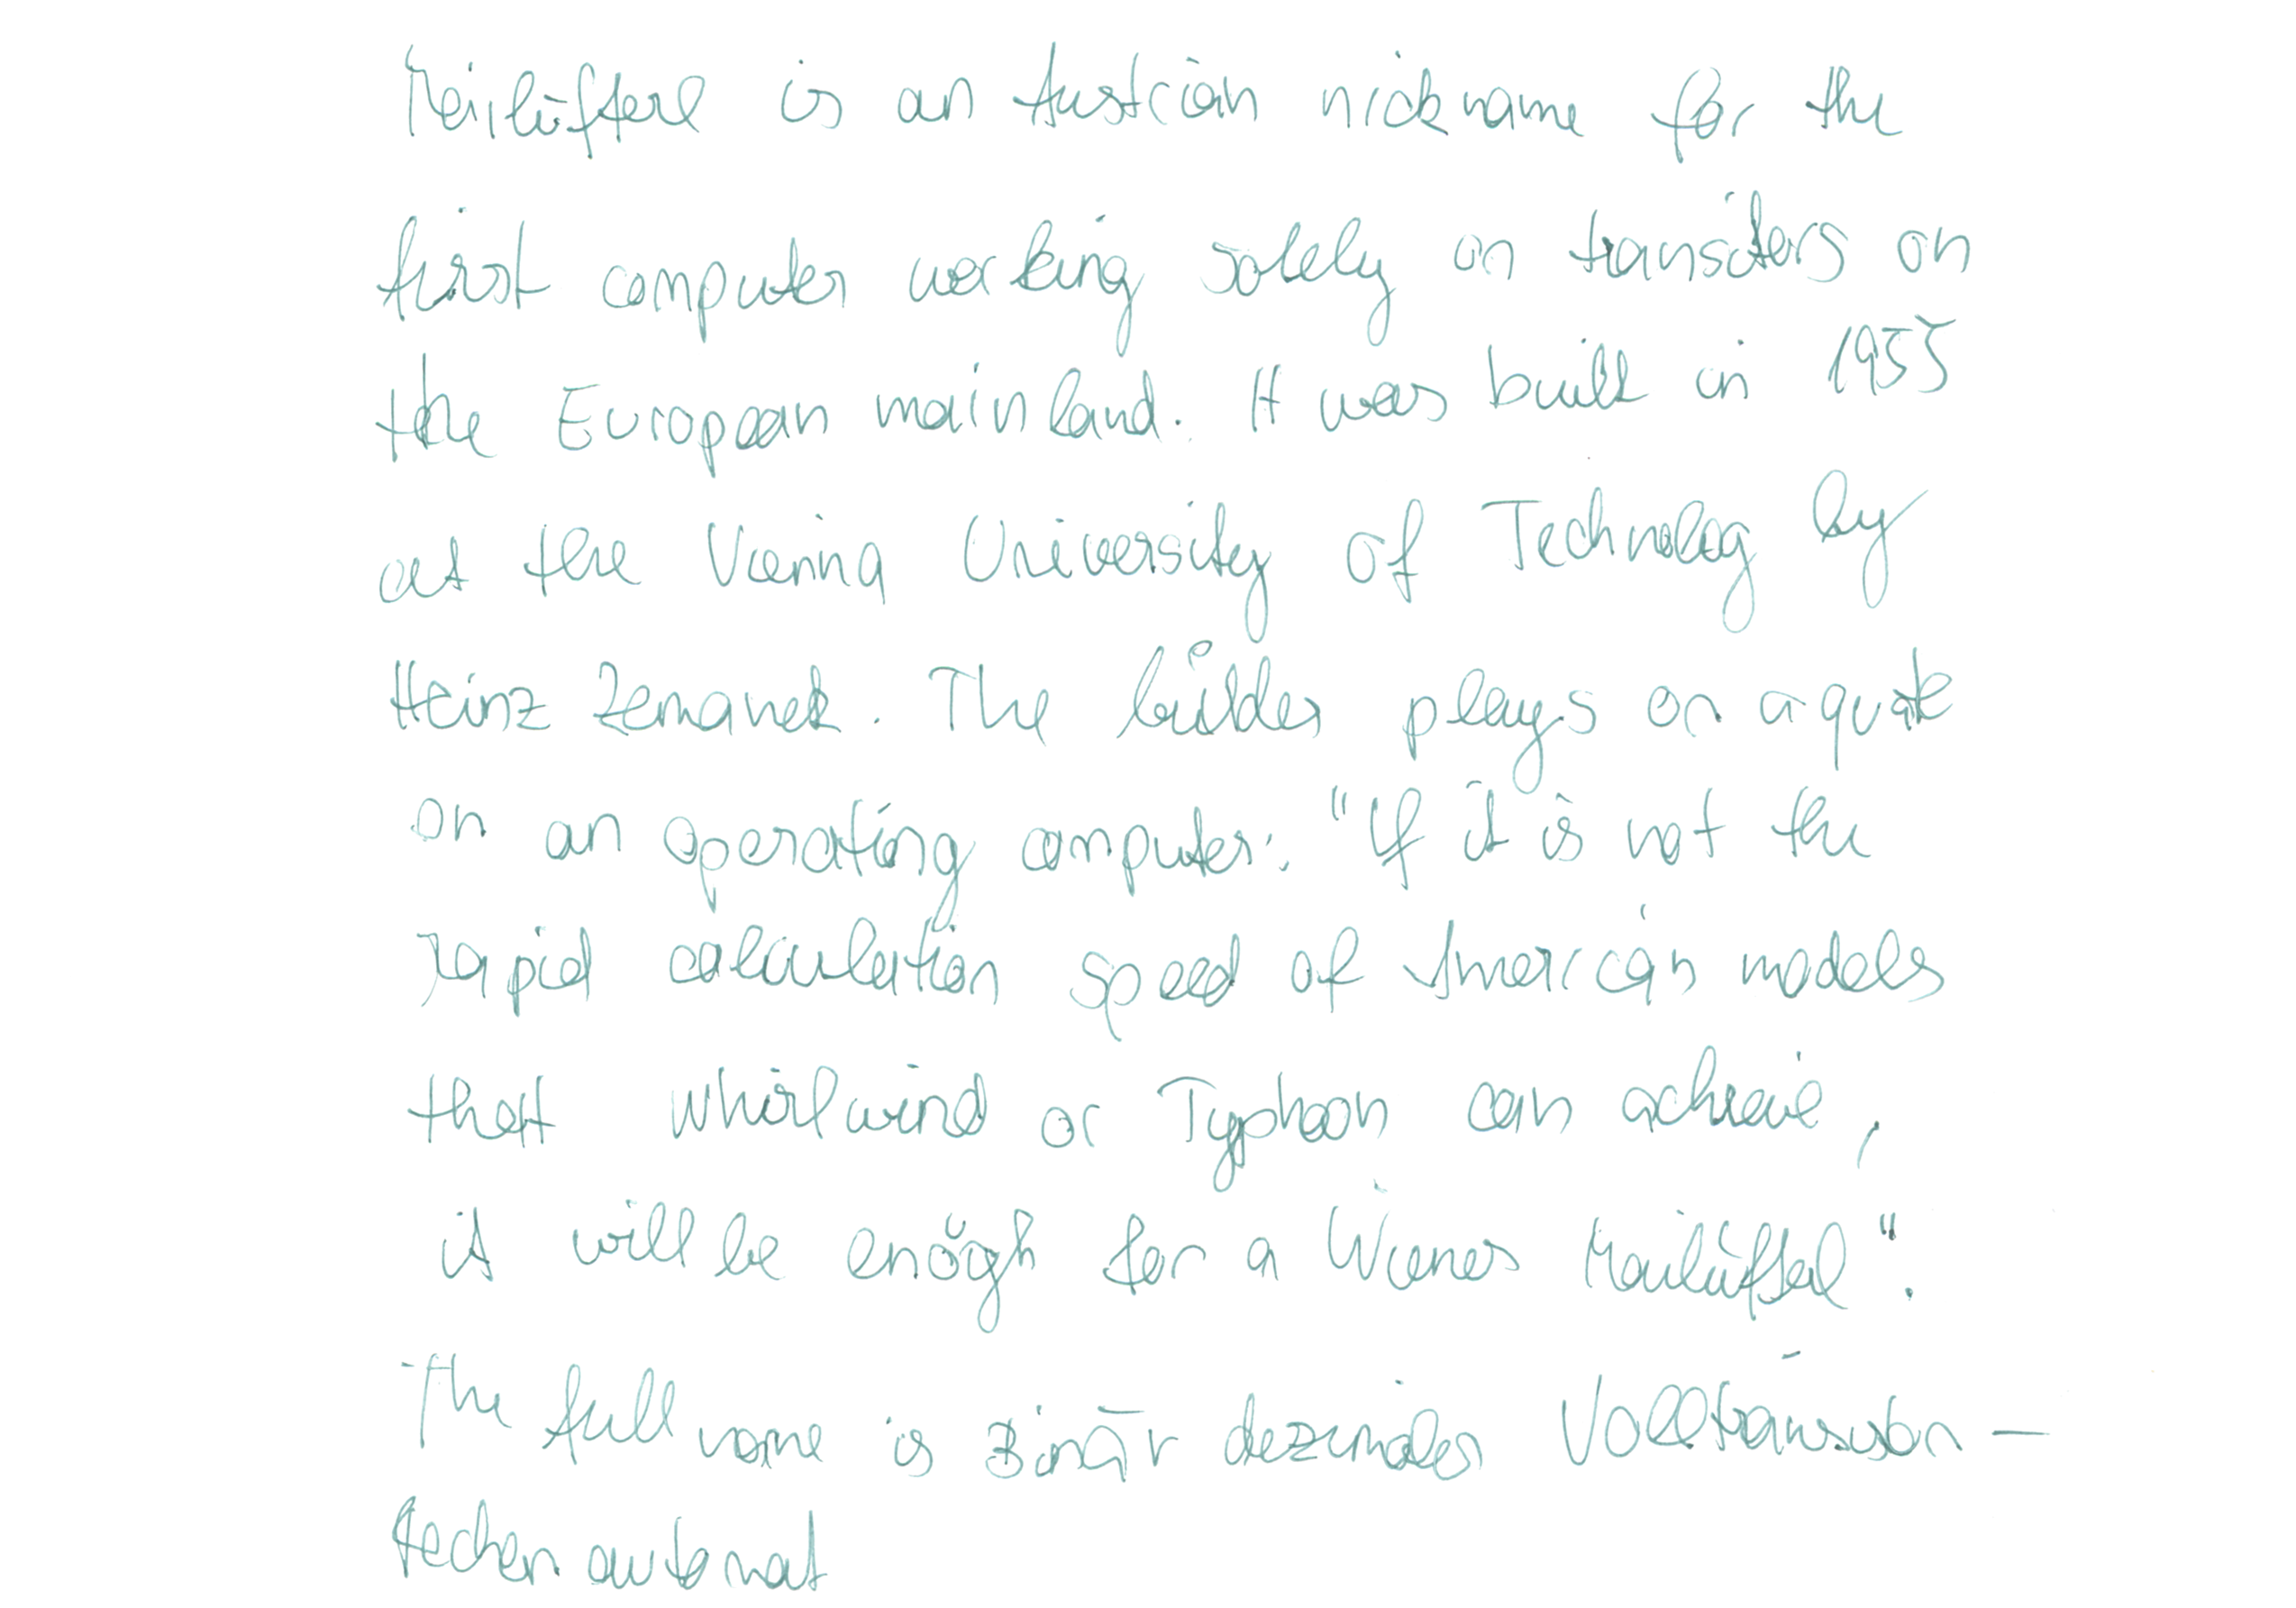 Mailüfterl is an Austrian nickname for the
first computer working solely on transistors on
the European mainland. It was built in 1955
at the Vienna University of Technology by
Heinz Zemanek. The builder plays on a quote
on an operating computer: "If it is not the
rapid calculation speed of American models
that Whirlwind or Typhoon can achieve,
it will be enough for a Wiener Mailüfterl".
The full name is Binär dezimaler Volltransistor-
Rechenautomat